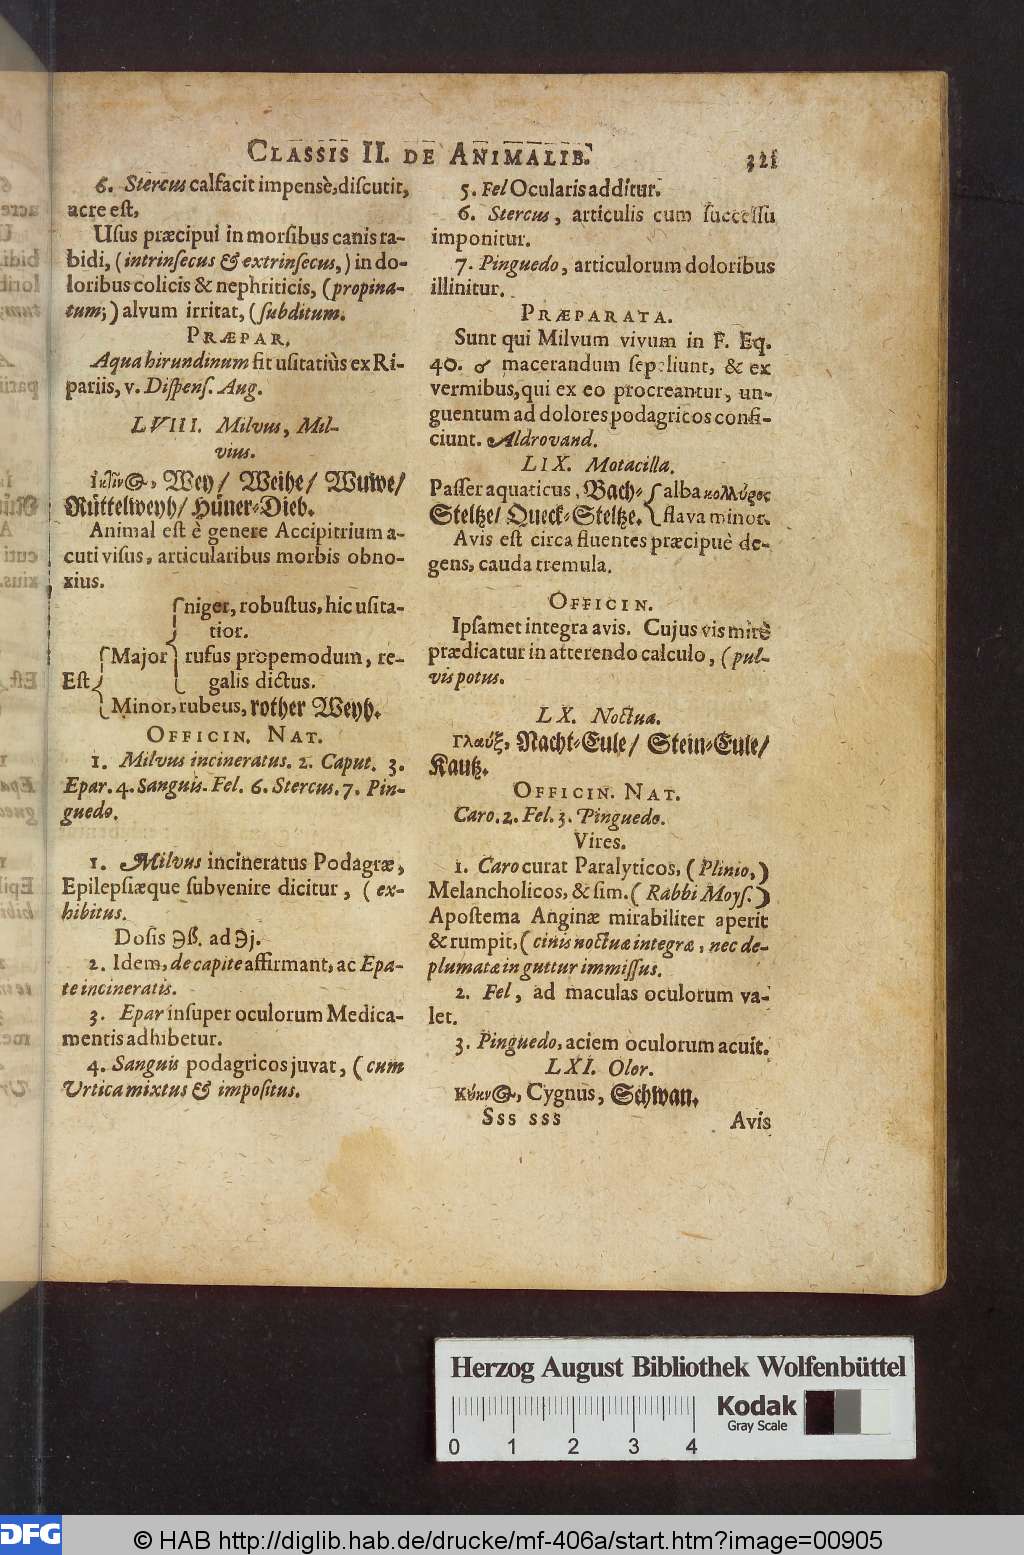 CLASSIS II. DE ANIMALIB. 321
6. Stercus calfacit impensè, discutit,
acre est,
Usus præcipui in morsibus canis ra-
bidi, (intrinsecus & extrinsecus,) in do-
loribus colicis & nephriticis, (propina-
tum;) alvum irritat, (subditum.
PRÆPAR.
Aqua hirundinum fit usitatiùs ex Ri-
pariis, v. Dispens. Aug.
LVIII. Milvus, Mil-
vius.
Wey/ Weihe/ Wuwe/
Rüttelweyh/ Hüner-Dieb.
Animal est è genere Accipitrium a-
cuti visus, articularibus morbis obno-
xius.
niger, robustus, hic usita-
tior.
Major rufus propemodum, re-
Est galis dictus.
Minor, rubeus, rother Weyh.
OFFICIN. NAT.
1. Milvus incineratus. 2. Caput. 3.
Epar. 4. Sanguis. Fel. 6. Stercus. 7. Pin-
guedo.
1. Milvus incineratus Podagræ,
Epilepsiæque subvenire dicitur, (ex-
hibitus.
Dosis ℈ß. ad ℈j.
2. Idem, de capite affirmant, ac Epa-
te incineratis.
3. Epar insuper oculorum Medica-
mentis adhibetur.
4. Sanguis podagricos juvat, (cum
Urtica mixtus & impositus.
5. Fel Ocularis additur.
6. Stercus, articulis cum successu
imponitur.
7. Pinguedo, articulorum doloribus
illinitur.
PRÆPARATA.
Sunt qui Milvum vivum in F. Eq.
40. ♂ macerandum sepeliunt, & ex
vermibus, qui ex eo procreantur, un-
guentum ad dolores podagricos confi-
ciunt. Aldrovand.
LIX. Motacilla.
Passer aquaticus, Bach- alba
Steltze/ Queck-Steltze. flava minor.
Avis est circa fluentes præcipuè de-
gens, cauda tremula.
OFFICIN.
Ipsamet integra avis. Cujus vis mirè
prædicatur in atterendo calculo, (pul-
vis potus.
LX. Noctua.
Γλαύξ, Nacht-Eule/ Stein-Eule/
Kautz.
OFFICIN. NAT.
Caro. 2. Fel. 3. Pinguedo.
Vires.
1. Caro curat Paralyticos, (Plinio,)
Melancholicos, & sim. (Rabbi Moys.)
Apostema Anginæ mirabiliter aperit
& rumpit, (cinis noctuæ integræ, nec de-
plumatæ in guttur immissus.
2. Fel, ad maculas oculorum va-
let.
3. Pinguedo, aciem oculorum acuit.
LXI. Olor.
Κύκνος, Cygnus, Schwan.
Sss sss Avis
Herzog August Bibliothek Wolfenbüttel
Kodak
Gray Scale
0 1 2 3 4
DFG © HAB http://diglib.hab.de/drucke/mf-406a/start.htm?image=00905